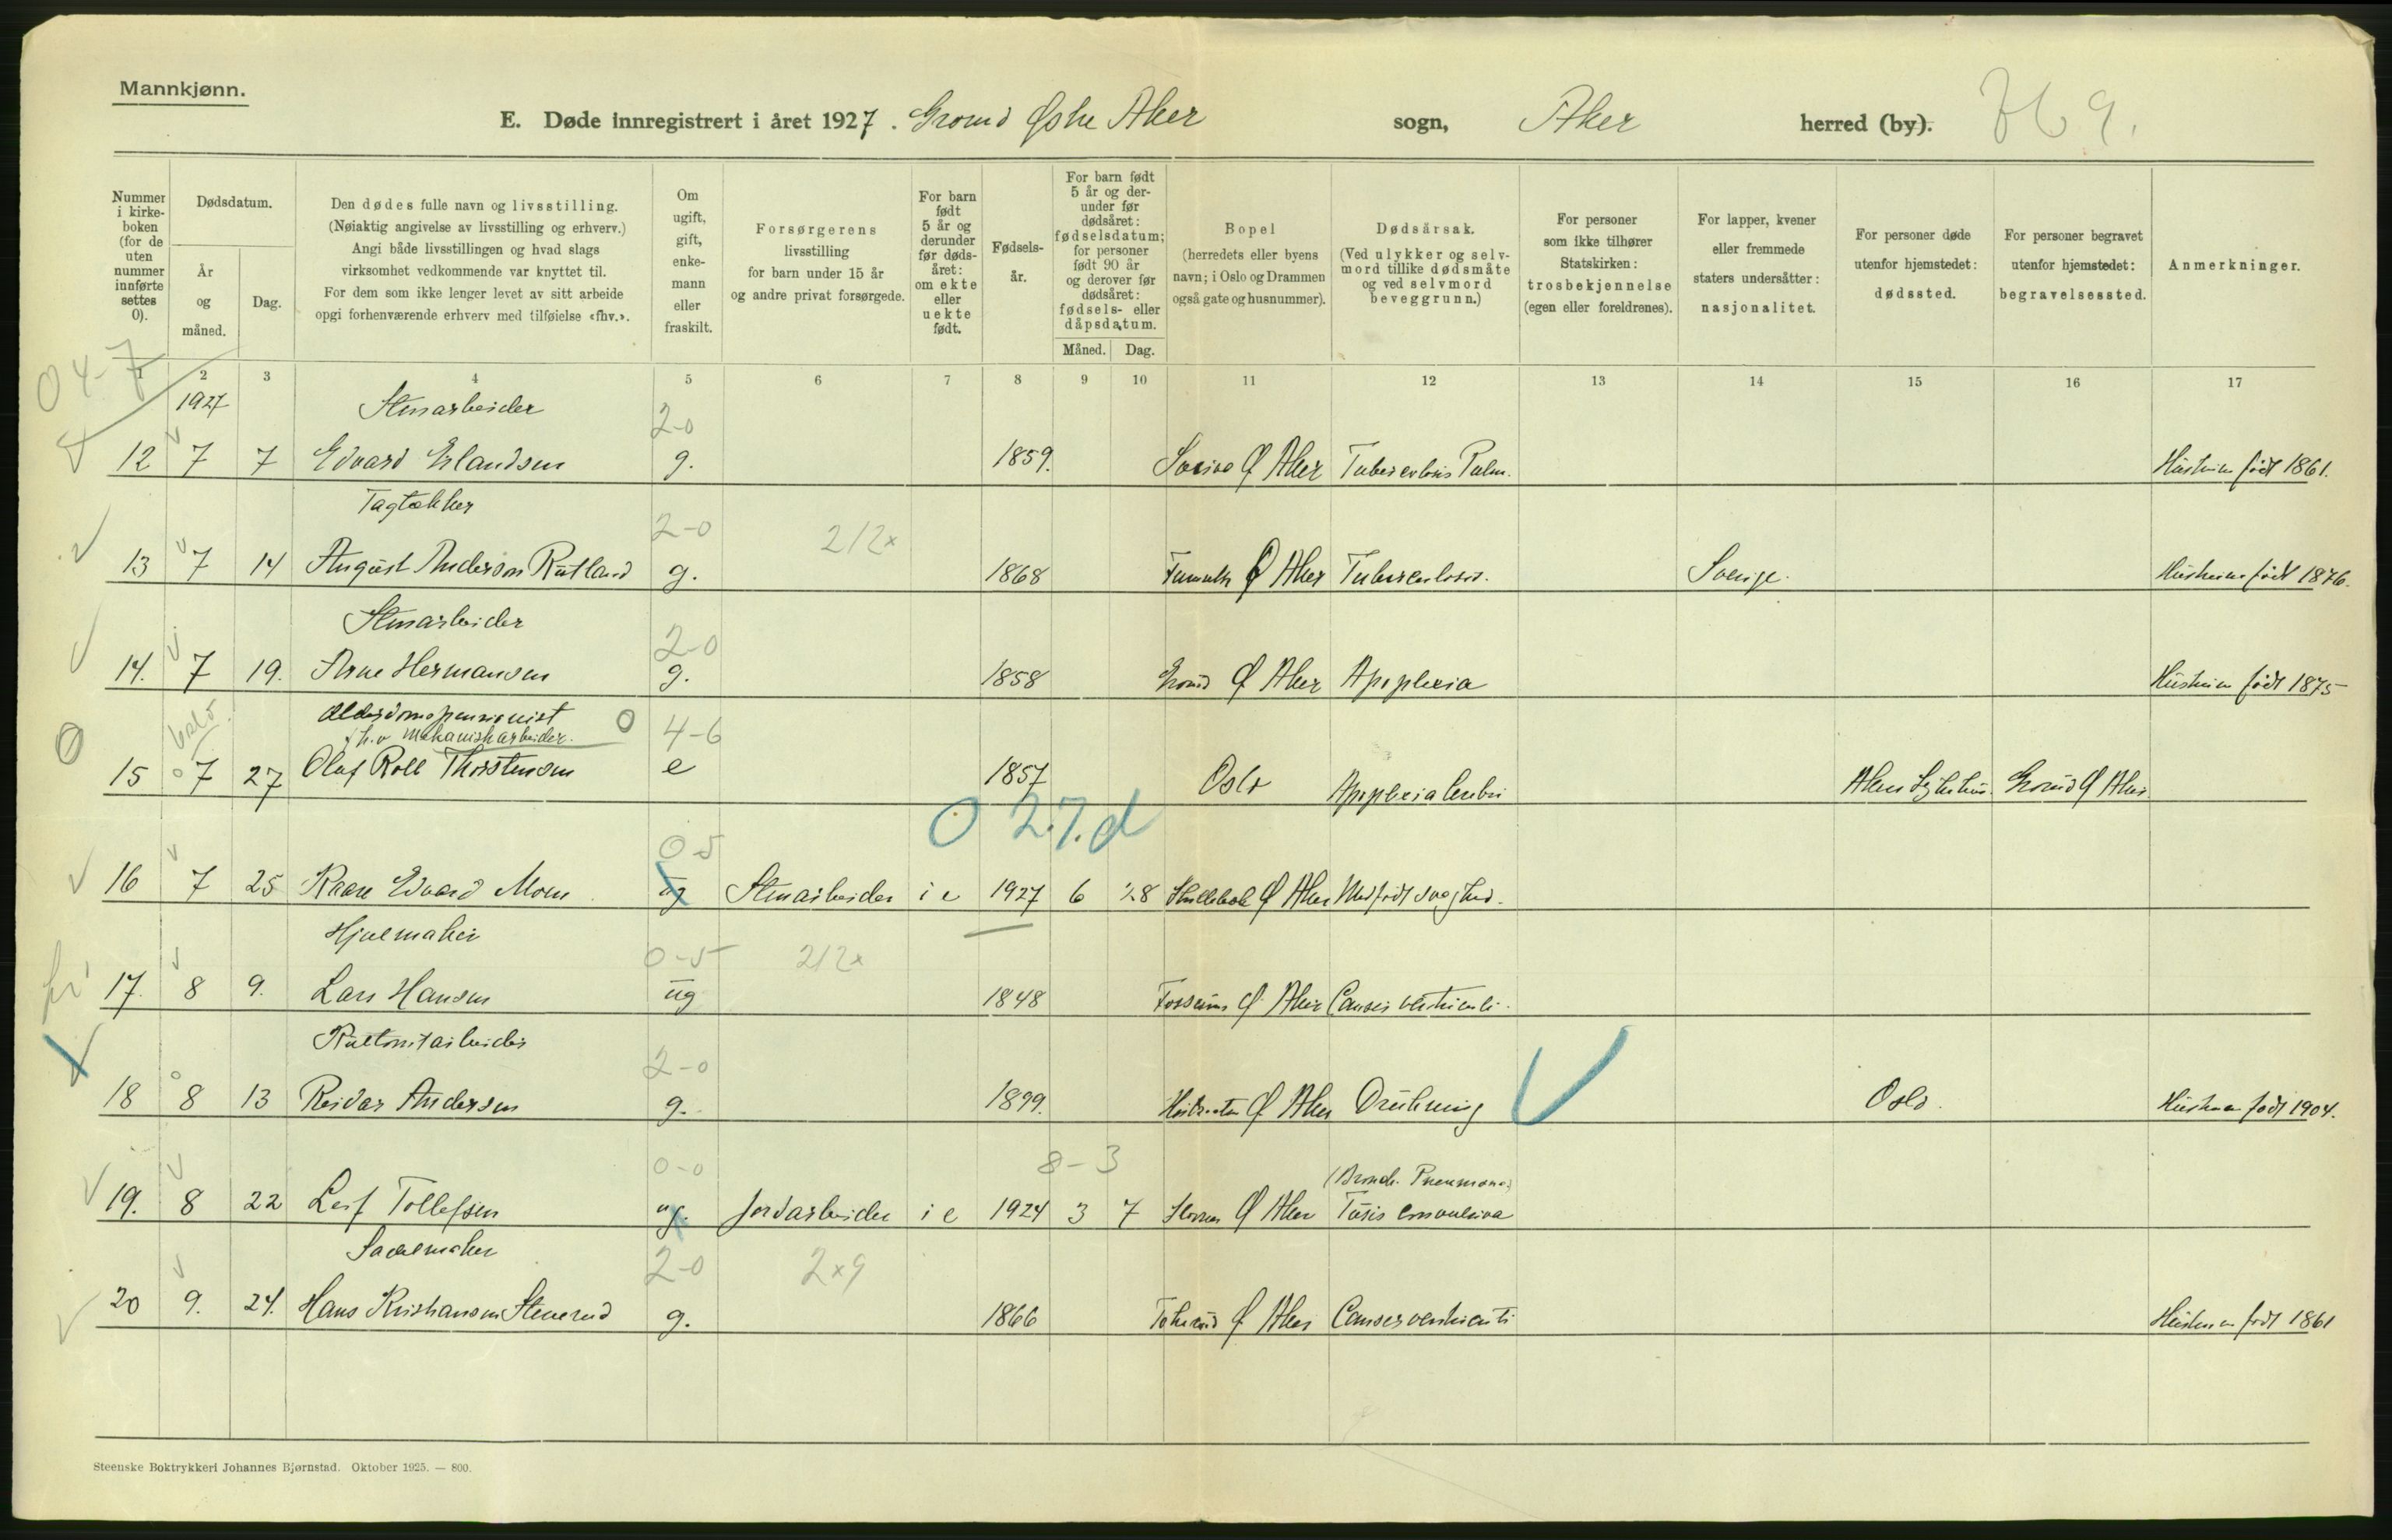 Mannkjønn.
E. Døde innregistrert i året 1927. Grorud Østre Aker sogn, Aker herred (by). 369.
Nummer i kirkeboken (for de uten nummer innførte settes 0).
Dødsdatum.
År og måned.
Dag.
Den dødes fulle navn og livsstilling.
(Nøiaktig angivelse av livsstilling og erhverv.)
Angi både livsstillingen og hvad slags
virksomhet vedkommende var knyttet til.
For dem som ikke lenger levet av sitt arbeide
opgi forhenværende erhverv med tilføielse «fhv.».
Om ugift, gift, enkemann eller fraskilt.
Forsørgerens livsstilling
for barn under 15 år
og andre privat forsørgede.
For barn født 5 år og derunder før dødsåret: om ekte eller uekte født.
Fødselsår.
For barn født 5 år og derunder før dødsåret: fødselsdatum; for personer født 90 år og derover før dødsåret: fødsels- eller dåpsdatum.
Måned. Dag.
Bopel
(herredets eller byens
navn; i Oslo og Drammen
også gate og husnummer).
Dødsårsak.
(Ved ulykker og selvmord tillike dødsmåte og ved selvmord beveggrunn.)
For personer
som ikke tilhører
Statskirken:
trosbekjennelse
(egen eller foreldrenes).
For lapper, kvener
eller fremmede
staters undersåtter:
nasjonalitet.
For personer døde
utenfor hjemstedet:
dødssted.
For personer begravet
utenfor hjemstedet:
begravelsessted.
Anmerkninger.
04-7
1 2 3 4 5 6 7 8 9 10 11 12 13 14 15 16 17
1927 Stenarbeider 2-0
12 7 7 Edvard Erlandsen g. 1859. Ø Aker Tuberculosis Pulm. Hustruen født 1861.
Tagtækker 2-0 212x
13 7 14 August Anderson Rutland g. 1868 Ø Aker Tuberculosis. Sverige. Hustruen født 1876.
Stenarbeider 2-0
14. 7 19. Arne Hermansen g. 1858 Grorud Ø Aker Apoplexia Hustruen født 1875
Alderdomspensionist 0 4-6
fh.v mekanisk arbeider.
15 7 27 Olaf Roll Thorstensen e 1857 Oslo Apoplexia Cerebri Aker Sykehus. Grorud Ø Aker
0 27.d
0-5
16 7 25 Kaare Edvard Moen ug Stenarbeider i e 1927 6 28 Ø Aker Medfødt svaghed.
Hjulmaker 0-5 212x
17. 8 9. Lars Hansen ug 1848 Fossum Ø Aker Cancer ventriculi.
2-0
18 8 13 Reidar Andersen g. 1899. Ø Aker Drukning Oslo. Hustruen født 1904.
0-0 8-3 (Bronch. Pneumonia)
19. 8 22 Leif Tollefsen ug. Jordarbeider i e 1924 3 7 Ø Aker Tusis convulsiva
Sadelmaker 2-0 2x9
20 9. 24. Hans Kristiansen Stenerud g. 1866 Ø Aker Cancer ventriculi Hustruen født 1861
Steenske Boktrykkeri Johannes Bjørnstad. Oktober 1925. — 800.